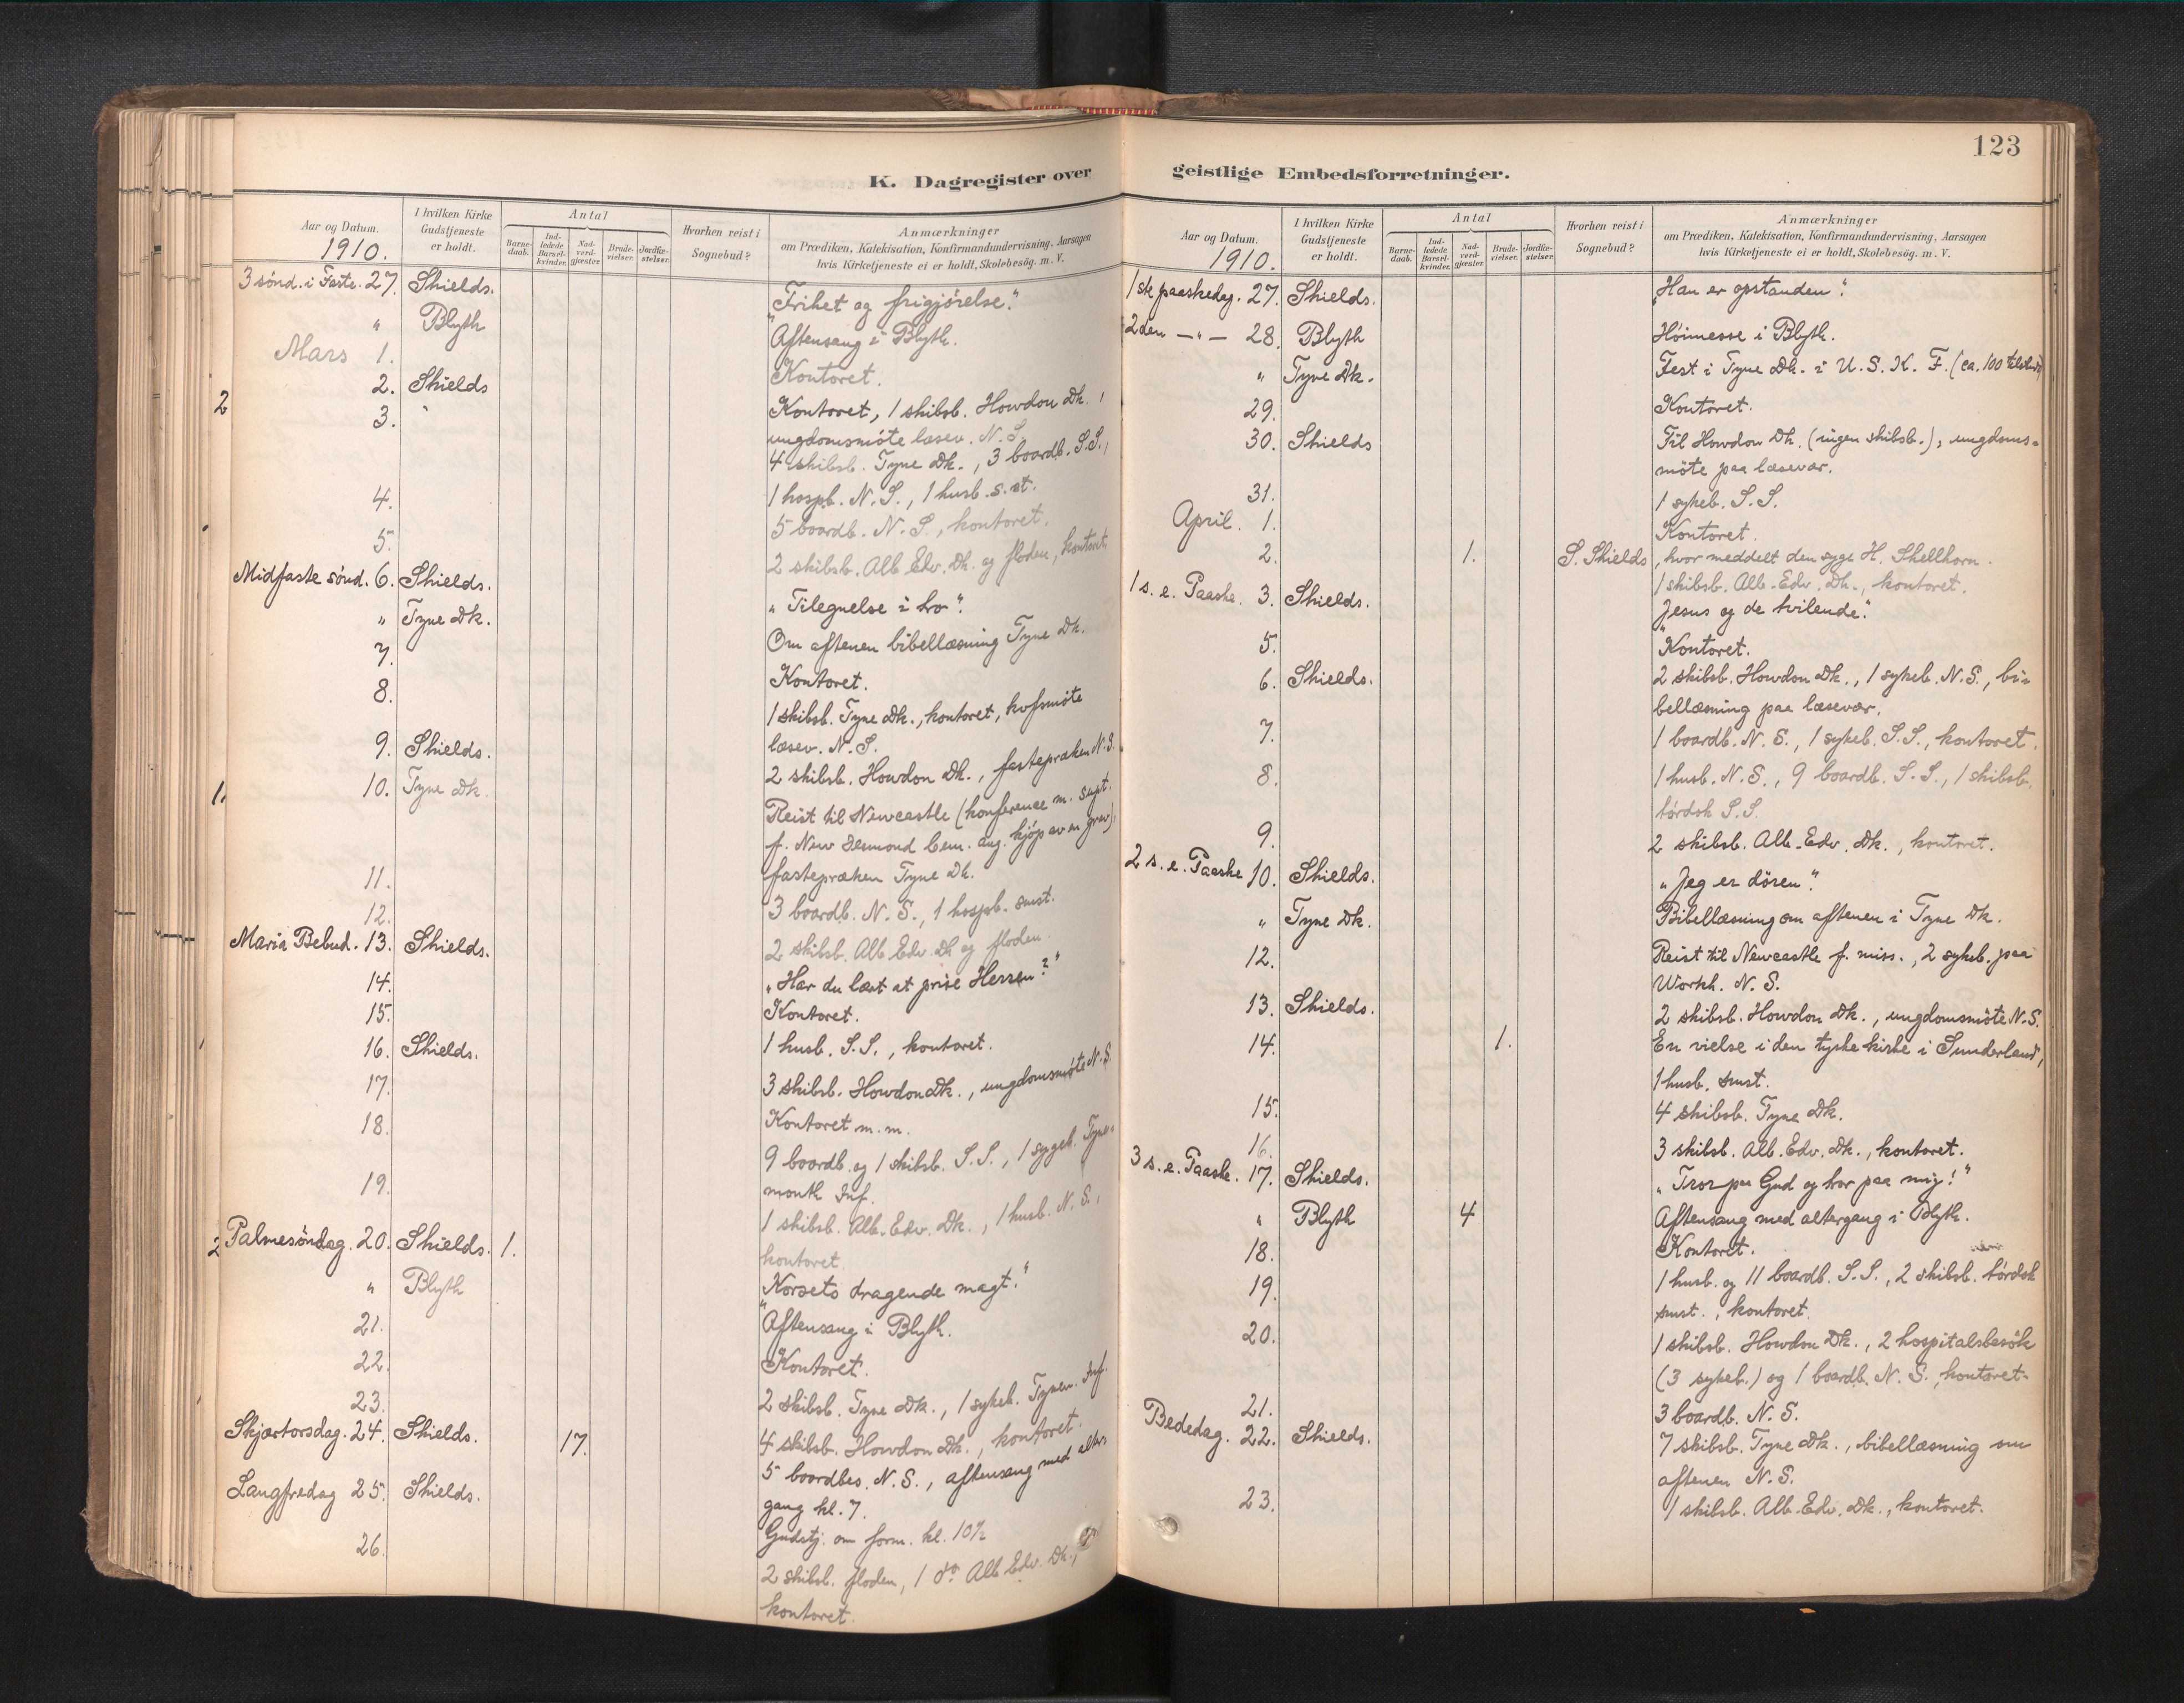 K. Dagregister over
Aar og Datum. 1910.
I hvilken Kirke Gudstjeneste er holdt.
Antal
Barnedaab.
Indledede Barselkvinder.
Nadverdgjæster.
Brudevielser.
Jordfæstelser.
Hvorhen reist i Sognebud?
Anmærkninger
om Prædiken, Katekisation, Konfirmandundervisning, Aarsagen
hvis Kirketjeneste ei er holdt, Skolebesög. m. V.
3 sönd. i Faste. 27. Shields. „Frihet og frigjörelse."
" Blyth Aftensang i Blyth.
Mars 1. Kontoret.
2 2. Shields Kontoret, 1 skibsb. Howdon Dk.,
ungdomsmöte læsev. N.S.
3. " 4 skibsb. Tyne Dk., 3 boardb. S.S.,
1 hospb. N.S., 1 husb. s.st.
4. 5 boardb. N.S., kontoret.
5. 2 skibsb. Alb. Edv. Dk. og floden, kontoret.
Midfaste sönd. 6. Shields. „Tilegnelse i tro".
" Tyne Dk. Om aftenen bibellæsning Tyne Dk.
7. Kontoret.
8. 1 skibsb. Tyne Dk., kontoret,
læsev. N.S.
9. Shields. 2 skibsb. Howdon Dk., fastepræken N.S.
1, 10. Tyne Dk. Reist til Newcastle (konference m. supt.
f. New Cem. ang. kjöp av en grav),
fastepræken Tyne Dk.
11. 3 boardb. N.S., 1 hospb. smst.
12. 2 skibsb. Alb. Edv. Dk og floden.
Maria Bebud. 13. Shields. „Har du lært at prise Herren?"
14. Kontoret.
15. 1 husb. S.S., kontoret.
16. Shields. 3 skibsb. Howdon Dk., ungdomsmöte N.S.
17. Kontoret m.m.
18. 9 boardb. og 1 skibsb. S.S., 1 sygeb. Tyne-
mouth Inf.
19. 1 skibsb. Alb. Edv. Dk., 1 husb. N.S.,
kontoret.
2 Palmesöndag. 20. Shields. 1. „Korsets dragende magt."
" Blyth Aftensang i Blyth.
21. Kontoret.
22. 2 skibsb. Tyne Dk., 1 sykeb. Tynem. Inf.
23. 4 skibsb. Howdon Dk., kontoret.
Skjærtorsdag. 24. Shields. 17. 5 boardbes. N.S., aftensang med alter-
gang kl. 7.
Langfredag 25. Shields. Gudstj. om form. kl. 10½
26. 2 skibsb. floden, 1 do Alb. Edv. Dk.,
kontoret.
123
geistlige Embedsforretninger.
Aar og Datum. 1910.
I hvilken Kirke Gudstjeneste er holdt.
Antal
Barnedaab.
Indledede Barselkvinder.
Nadverdgjæster.
Brudevielser.
Jordfæstelser.
Hvorhen reist i Sognebud?
Anmærkninger
om Prædiken, Katekisation, Konfirmandundervisning, Aarsagen
hvis Kirketjeneste ei er holdt, Skolebesög. m. V.
1ste paaskedag. 27. Shields. „Han er opstanden".
2den — " — 28. Blyth Höimesse i Blyth.
" Tyne Dk. Fest i Tyne Dk. i U.S.K.F. (ca. 100
29. Kontoret.
30. Shields Til Howdon Dk. (ingen skibsb.), ungdoms-
möte paa læsevær.
31. 1 sykeb. S.S.
April. 1. Kontoret.
2. 1. S. Shields, hvor meddelt den syge H. Shellhorn.
1 skibsb. Alb. Edv. Dk., kontoret.
1 s. e. Paaske. 3. Shields. „Jesus og de tvilende."
5. Kontoret.
6. Shields. 2 skibsb. Howdon Dk., 1 sykeb. N.S., bi-
bellæsning paa læsevær.
7. 1 boardb. N.S., 1 sykeb. S.S., kontoret.
8. 1 husb. N.S., 9 boardb. S.S., 1 skibsb.
tördok S.S.
9. 2 skibsb. Alb. Edv. Dk., kontoret.
2 s. e. Paaske 10. Shields. „Jeg er dören".
" Tyne Dk. Bibellæsning om aftenen i Tyne Dk.
12. Reist til Newcastle f. miss., 2 sykeb. paa
Workh. N.S.
13. Shields. 2 skibsb. Howdon Dk., ungdomsmöte N.S.
14. 1. En vielse i den tyske kirke i Sunderland,
1 husb. smst.
15. 4 skibsb. Tyne Dk.
16. 3 skibsb. Alb. Edv. Dk., kontoret.
3 s. e. Paaske. 17. Shields. „Tror paa Gud og tror paa mig!"
" Blyth 4 Aftensang med altergang i Blyth.
18. Kontoret.
19. 1 husb. og 11 boardb. S.S., 2 skibsb. tördok
smst., kontoret.
20. 1 skibsb. Howdon Dk., 2 hospitalsbesök
(3 sykeb.) og 1 boardb. N.S., kontoret.
21. 3 boardb. N.S.
Bededag. 22. Shields. 7 skibsb. Tyne Dk., bibellæsning om
aftenen N.S.
23. 1 skibsb. Alb. Edv. Dk., kontoret.